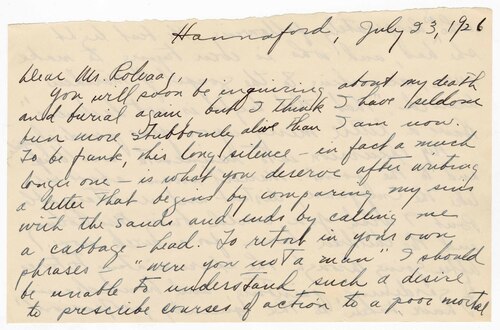 Hannaford, July 23, 1926
Dear Mr. Rolvaag,
You will soon be inquiring about my death
and burial again but I think I have seldom
been more stubbornly alive than I am now.
To be frank, this long silence - in fact a much
longer one - is what you deserve after writing
a letter that begins by comparing my sins
with the sands and ends by calling me
a cabbage-head. To retort in your own
phrases - "were you not a man" I should
be unable to understand such a desire
to prescribe courses of action to a poor mortal